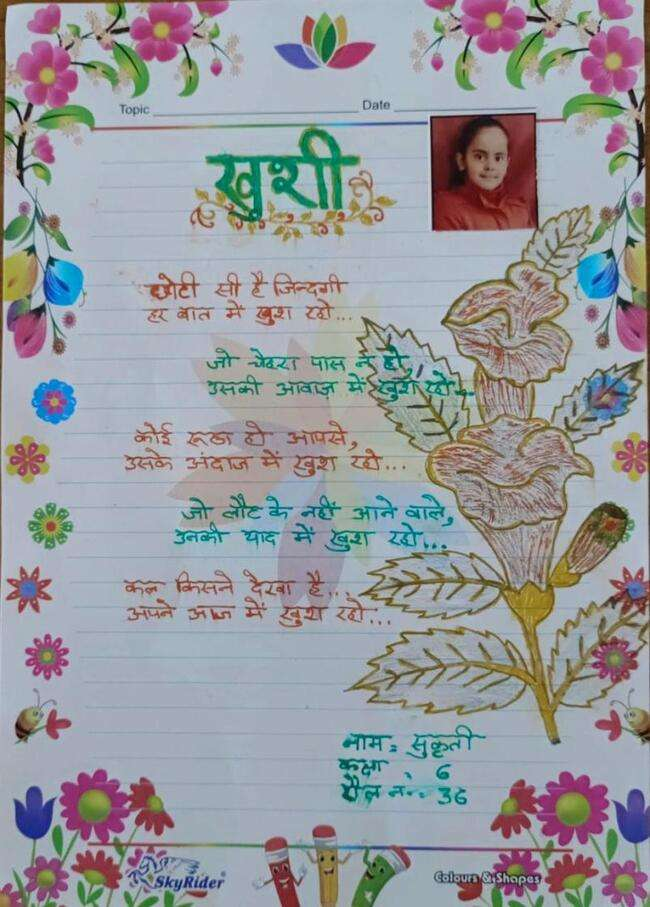 Topic Date
खुशी
छोटी सी है जिन्दगी
हर बात में खुश रहो...
जो चेहरा पास न हो,
उसकी आवाज़ में खुश रहो...
कोई रूठा हो आपसे,
उसके अंदाज में खुश रहो...
जो लौट के नहीं आने वाले,
उनकी याद में खुश रहो...
कल किसने देखा है...
अपने आज में खुश रहो...
नाम = सुकृती
कक्षा . 6
रौल न.- 36
SkyRider
Colours & Shapes